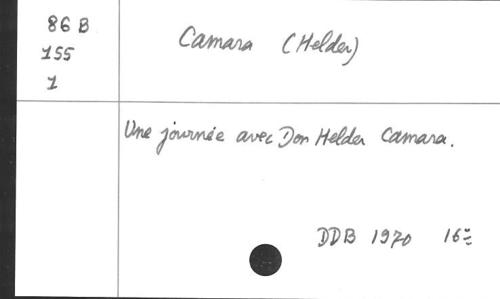 86 B
155
1
Camara (Helder)
Une journée avec Don Helder Camara.
DDB 1970 16º